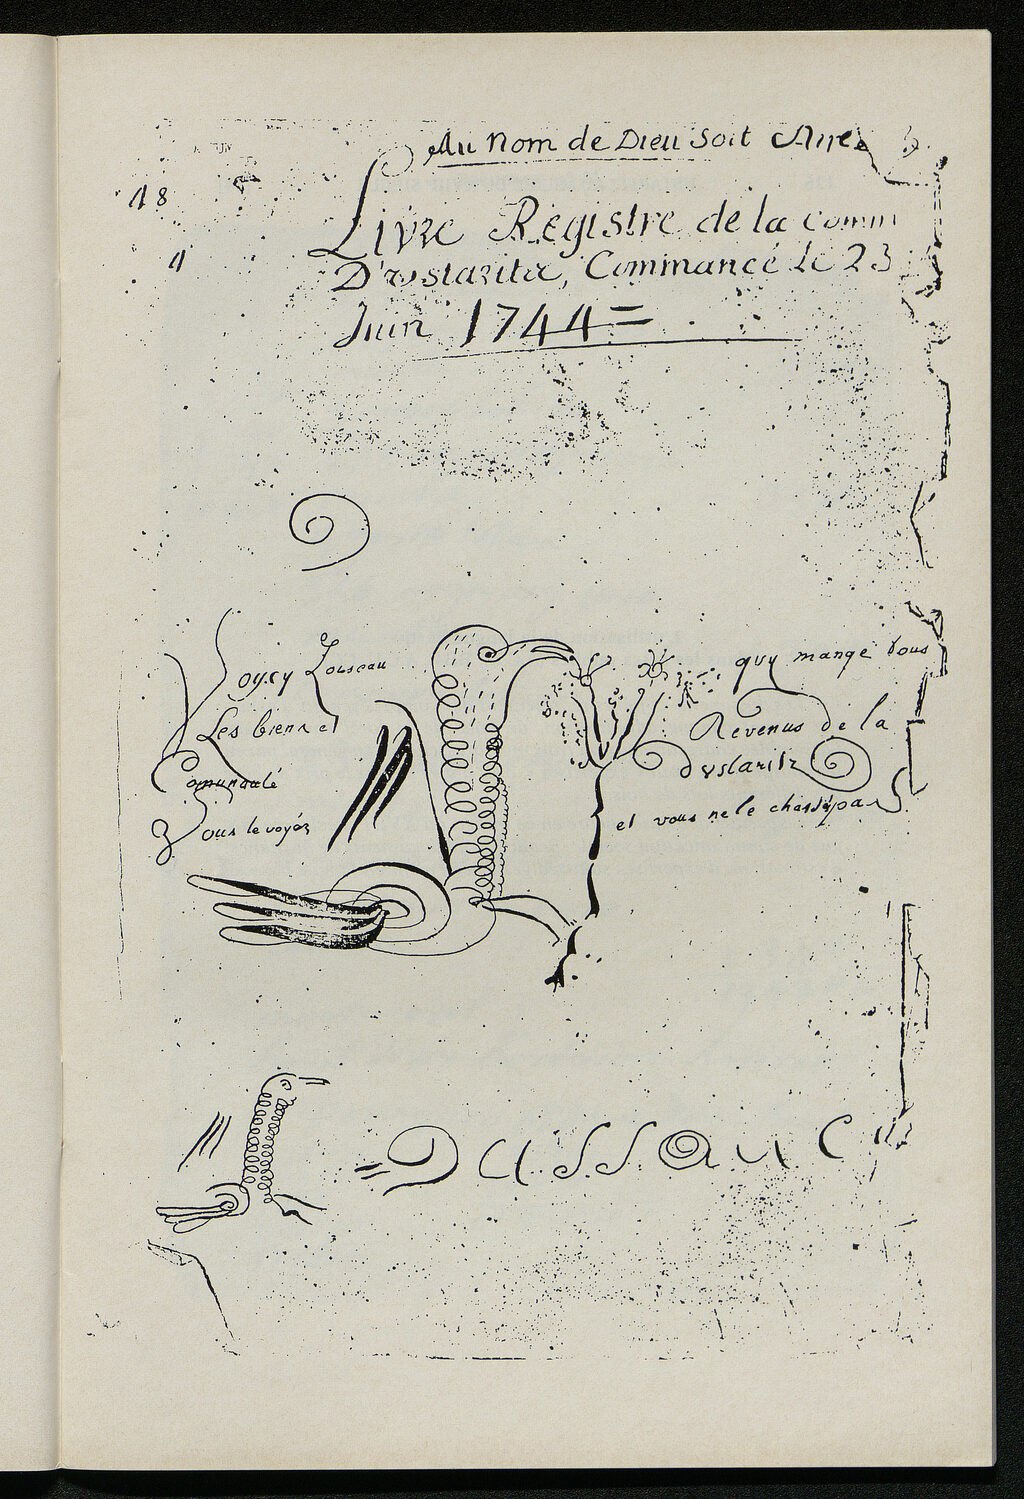 Au Nom de Dieu Soit
18
Livre Registre de la Comm
4
D'ustaritz, Commancé Le 23
Juin 1744 =
Voycy Loiseau quy mange tous
Les biens et Revenus de la
Comunauté dustaritz
Vous le voyéz et vous ne le chassépas
= Dussauc